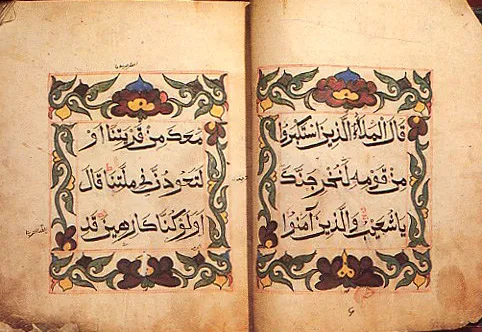 قَالَ الْمَلَأُ الَّذِينَ اسْتَكْبَرُوا
مِنْ قَوْمِهِ لَنُخْرِجَنَّكَ
يَا شُعَيْبُ وَالَّذِينَ آمَنُوا
مَعَكَ مِنْ قَرْيَتِنَا أَوْ
لَتَعُودُنَّ فِي مِلَّتِنَا قَالَ
أَوَلَوْ كُنَّا كَارِهِينَ قَدِ